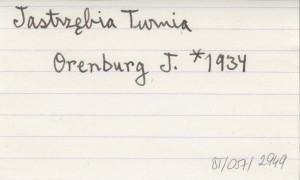 Jastrzębia Turnia
Orenburg J. *1934
BT/057/2949